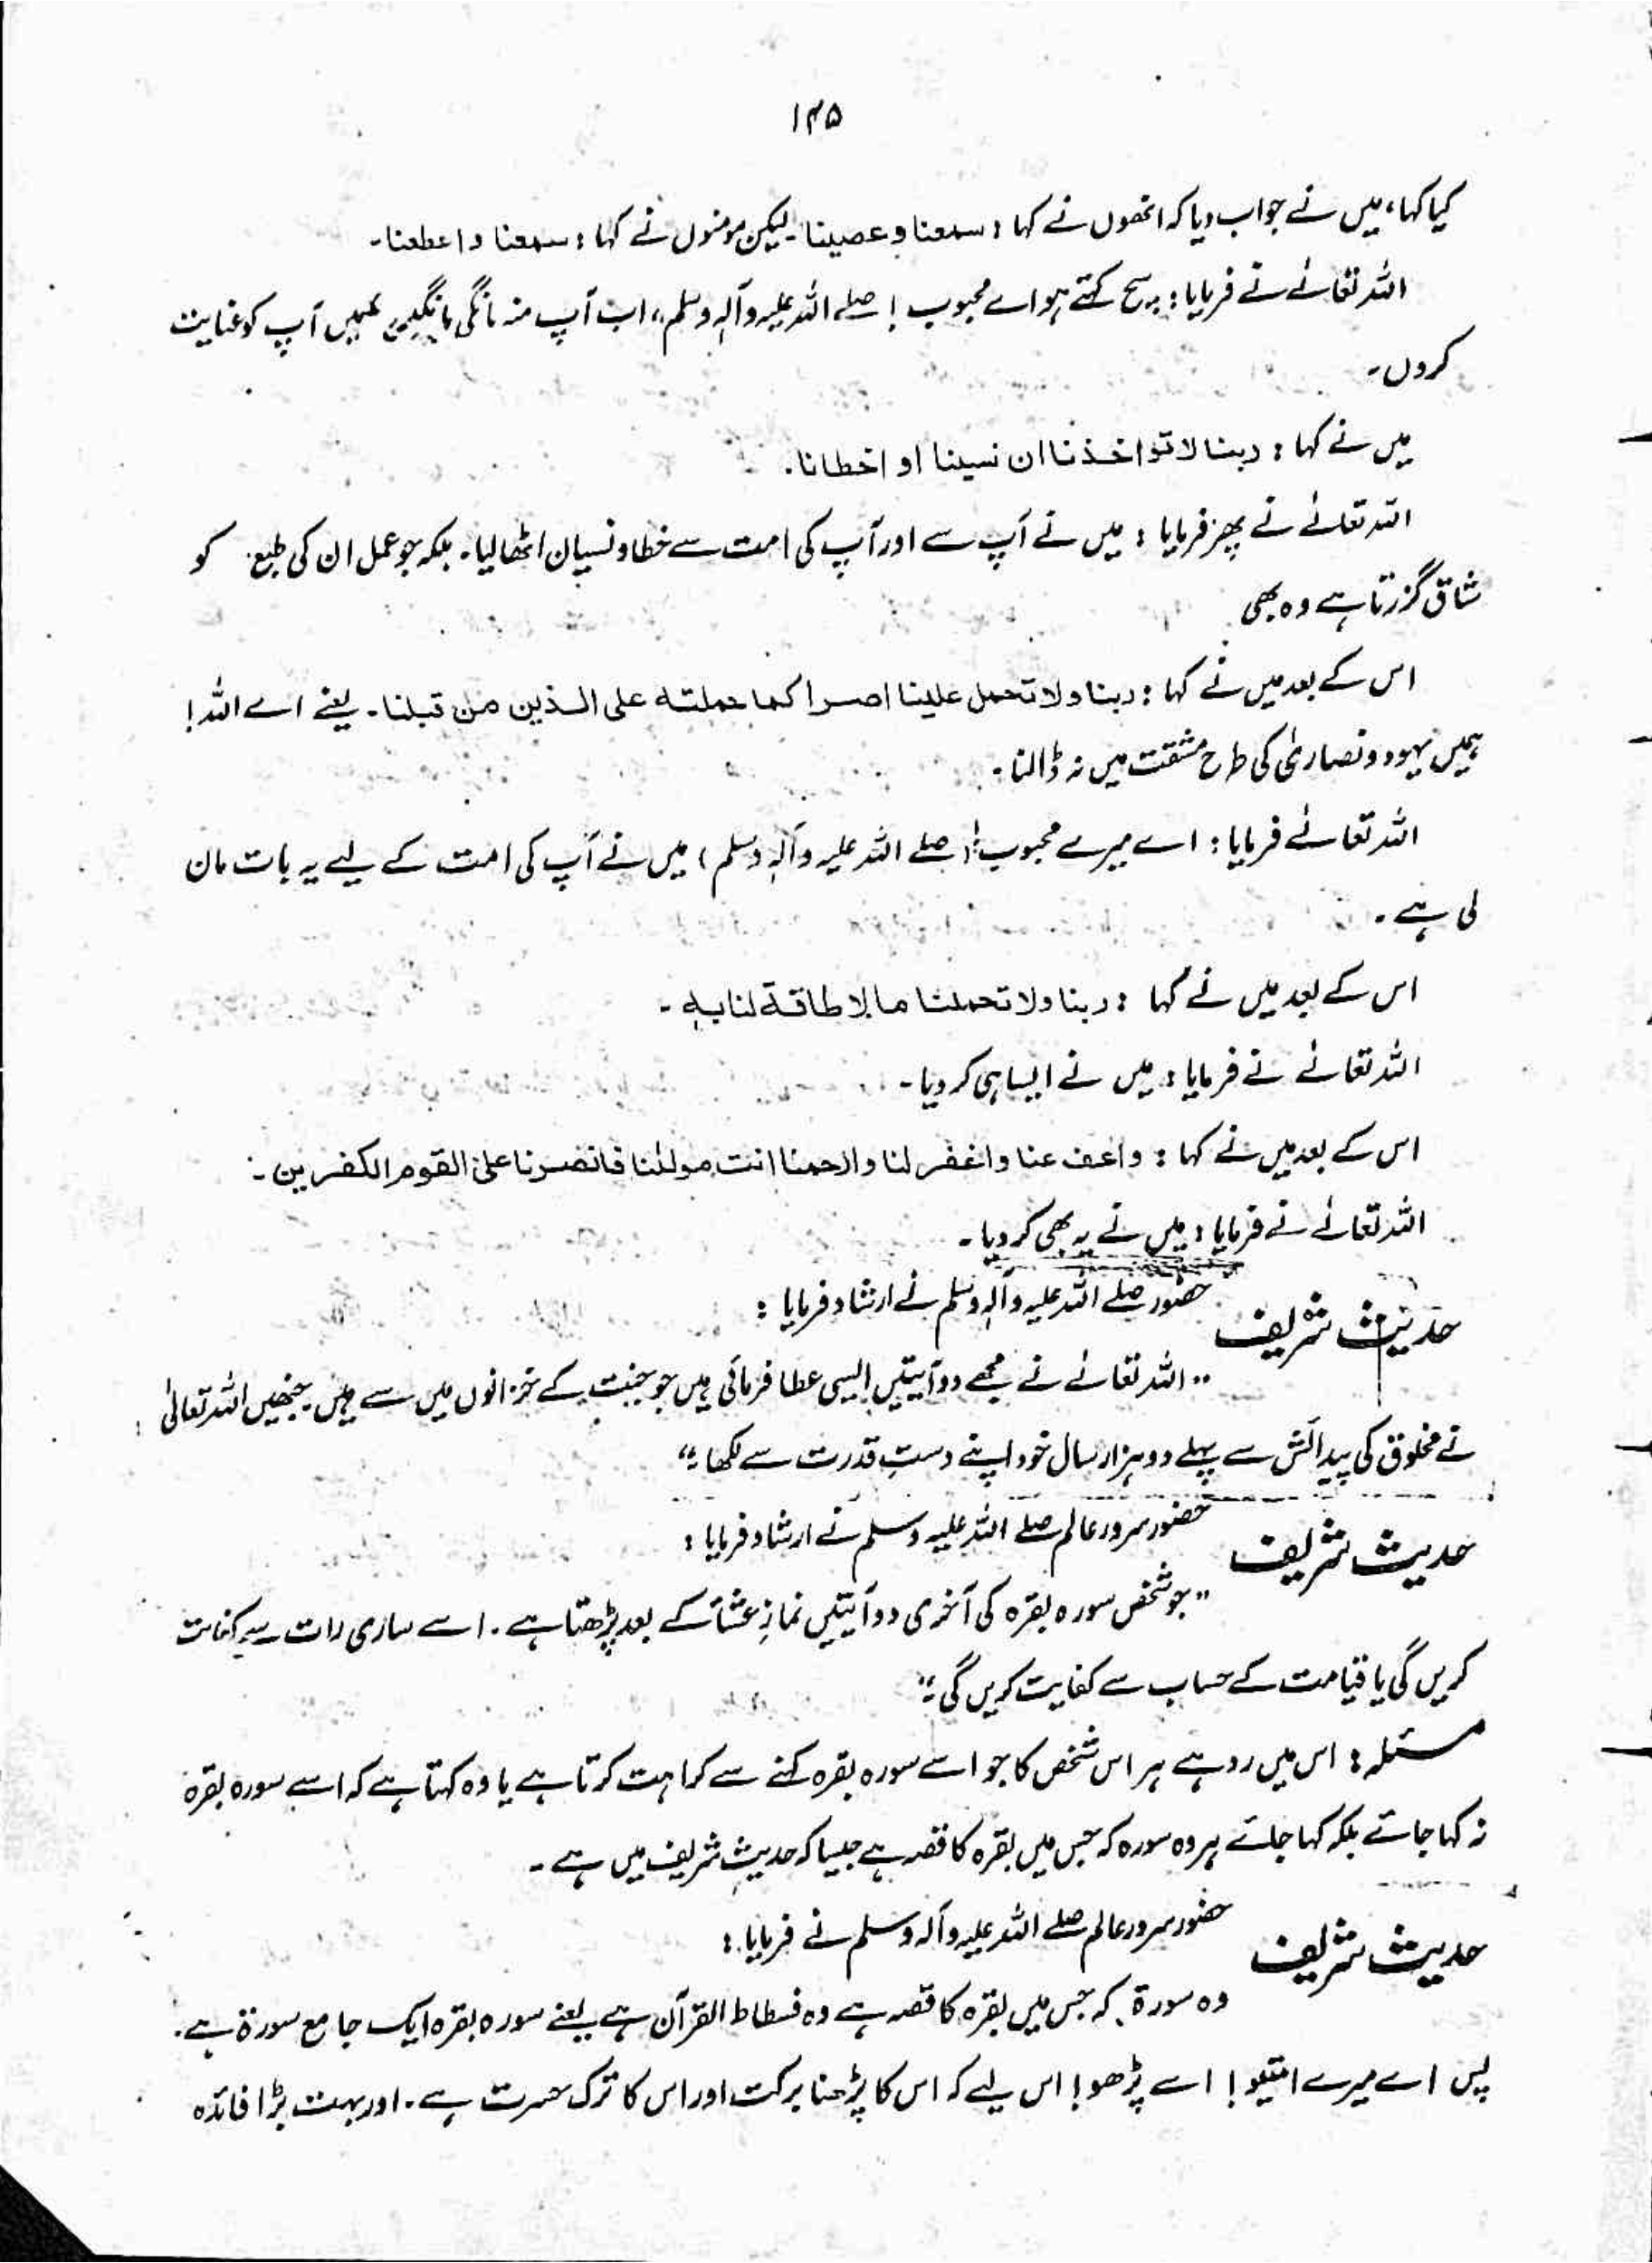 ۱۴۵
کیا کہا، میں نے جواب دیا کہ انھوں نے کہا : سمعنا و عصینا۔ لیکن مومنوں نے کہا : سمعنا و اعطعنا۔
اللہ تعالےٰ نے فرمایا : یہ سچ کہتے ہو اے محبوب ! صلے اللہ علیہ وآلہٖ وسلم، اب آپ منہ مانگی مانگیں میں آپ کو عنایت
کروں۔
میں نے کہا : ربنا لا تؤاخذنا ان نسینا او اخطانا۔
اللہ تعالےٰ نے پھر فرمایا : میں نے آپ سے اور آپ کی امت سے خطا و نسیان اٹھا لیا۔ بلکہ جو عمل ان کی طبع کو
شاق گزرتا ہے وہ بھی
اس کے بعد میں نے کہا : ربنا ولا تحمل علینا اصرا کما حملتہ علی الذین من قبلنا۔ یعنے اے اللہ !
ہمیں یہود و نصاریٰ کی طرح مشقت میں نہ ڈالنا۔
اللہ تعالےٰ فرمایا : اے میرے محبوب ! (صلے اللہ علیہ وآلہٖ وسلم) میں نے آپ کی امت کے لیے یہ بات مان
لی ہے۔
اس کے بعد میں نے کہا : ربنا ولا تحملنا ما لا طاقۃ لنا بہٖ۔
اللہ تعالےٰ نے فرمایا : میں نے ایسا ہی کر دیا۔
اس کے بعد میں نے کہا : واعف عنا واغفر لنا وارحمنا انت مولٰنا فانصرنا علی القوم الکفرین۔
اللہ تعالےٰ نے فرمایا : میں نے یہ بھی کر دیا۔
حدیث شریف حضور صلے اللہ علیہ وآلہٖ وسلم نے ارشاد فرمایا :
"اللہ تعالےٰ نے مجھے دو آیتیں ایسی عطا فرمائی ہیں جو جنت کے خزانوں میں سے ہیں۔ جنھیں اللہ تعالیٰ
نے مخلوق کی پیدائش سے پہلے دو ہزار سال خود اپنے دستِ قدرت سے لکھا۔"
حدیث شریف حضور سرور عالم صلے اللہ علیہ وسلم نے ارشاد فرمایا :
"جو شخص سورہ بقرہ کی آخری دو آیتیں نمازِ عشاء کے بعد پڑھتا ہے۔ اسے ساری رات سے کفایت
کریں گی یا قیامت کے حساب سے کفایت کریں گی۔"
مسئلہ : اس میں رد ہے ہر اس شخص کا جو اسے سورہ بقرہ کہنے سے کراہت کرتا ہے یا وہ کہتا ہے کہ اسے سورہ بقرہ
نہ کہا جائے بلکہ کہا جائے ہر وہ سورہ کہ جس میں بقرہ کا قصہ ہے جیسا کہ حدیثِ شریف میں ہے۔
حدیث شریف حضور سرور عالم صلے اللہ علیہ وآلہ وسلم نے فرمایا :
وہ سورۃ کہ جس میں بقرہ کا قصہ ہے وہ فسطاط القرآن ہے یعنے سورہ بقرہ ایک جامع سورۃ ہے۔
پس اے میرے امتیو ! اسے پڑھو ! اس لیے کہ اس کا پڑھنا برکت اور اس کا ترک حسرت ہے۔ اور بہت بڑا فائدہ